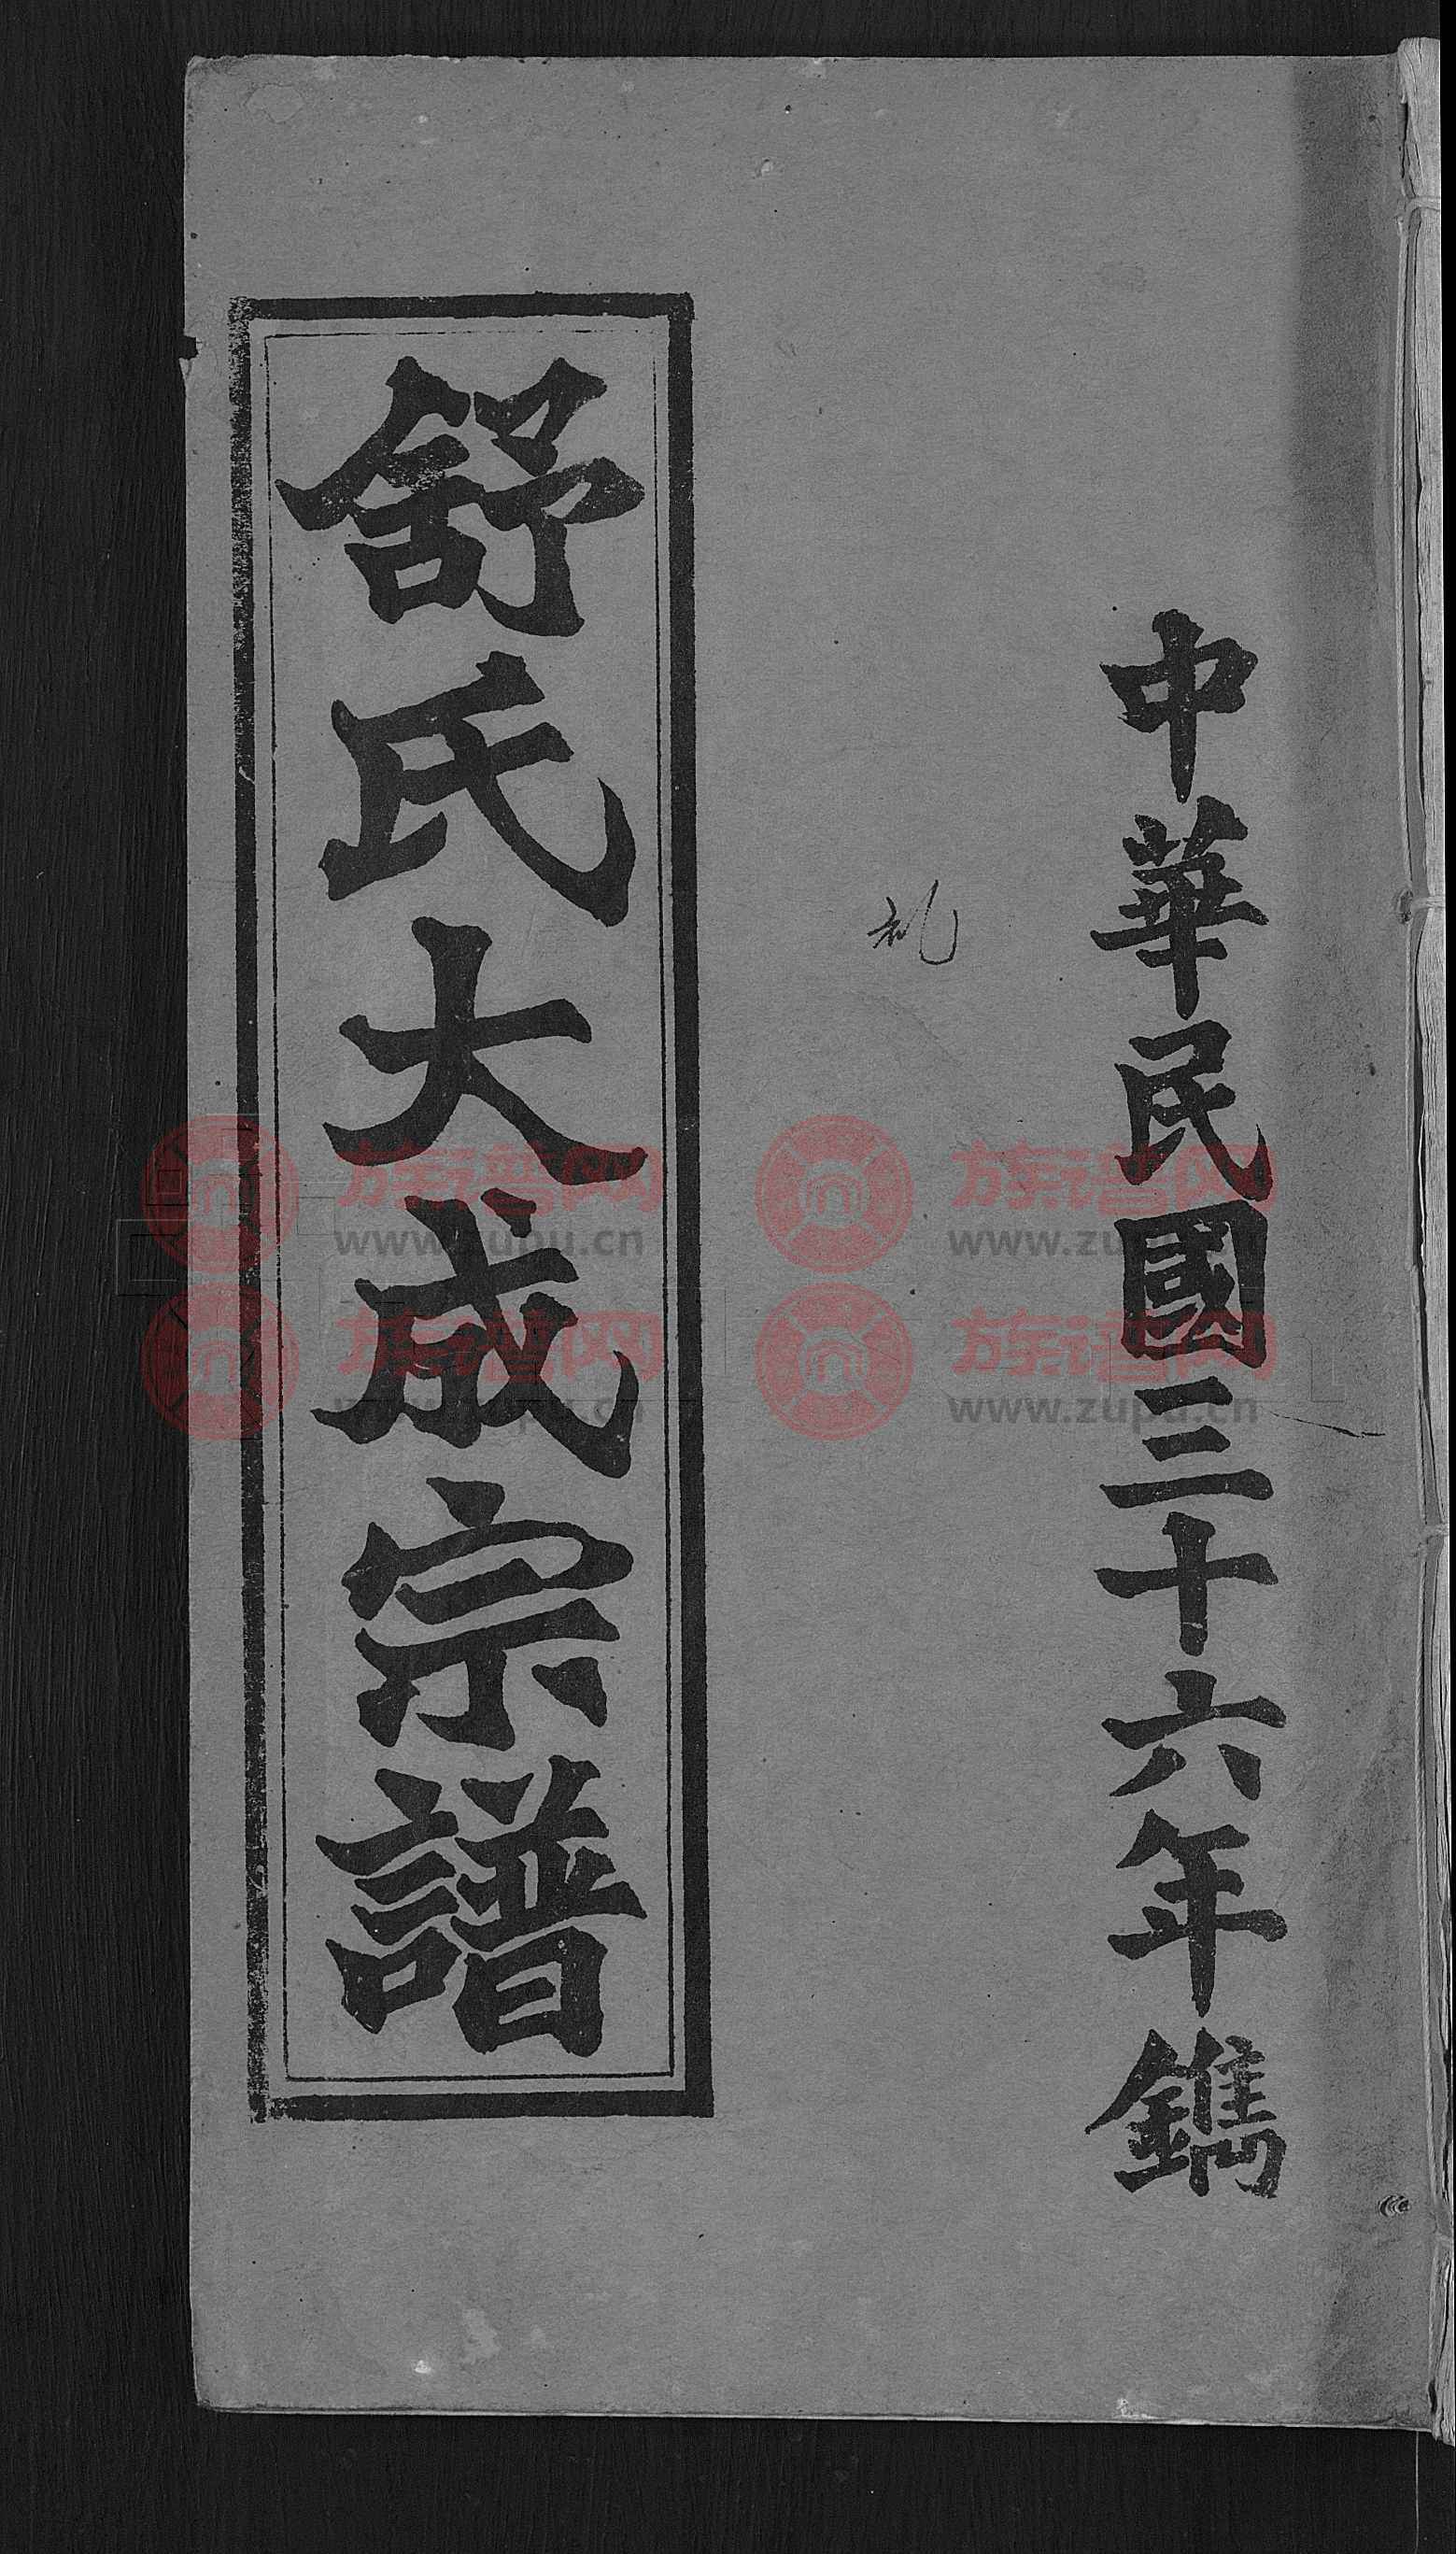 中華民國三十六年鐫
礼
舒氏大成宗譜
族谱网
www.zupu.cn
族谱网
www.zupu.cn
族谱网
www.zupu.cn
族谱网
www.zupu.cn